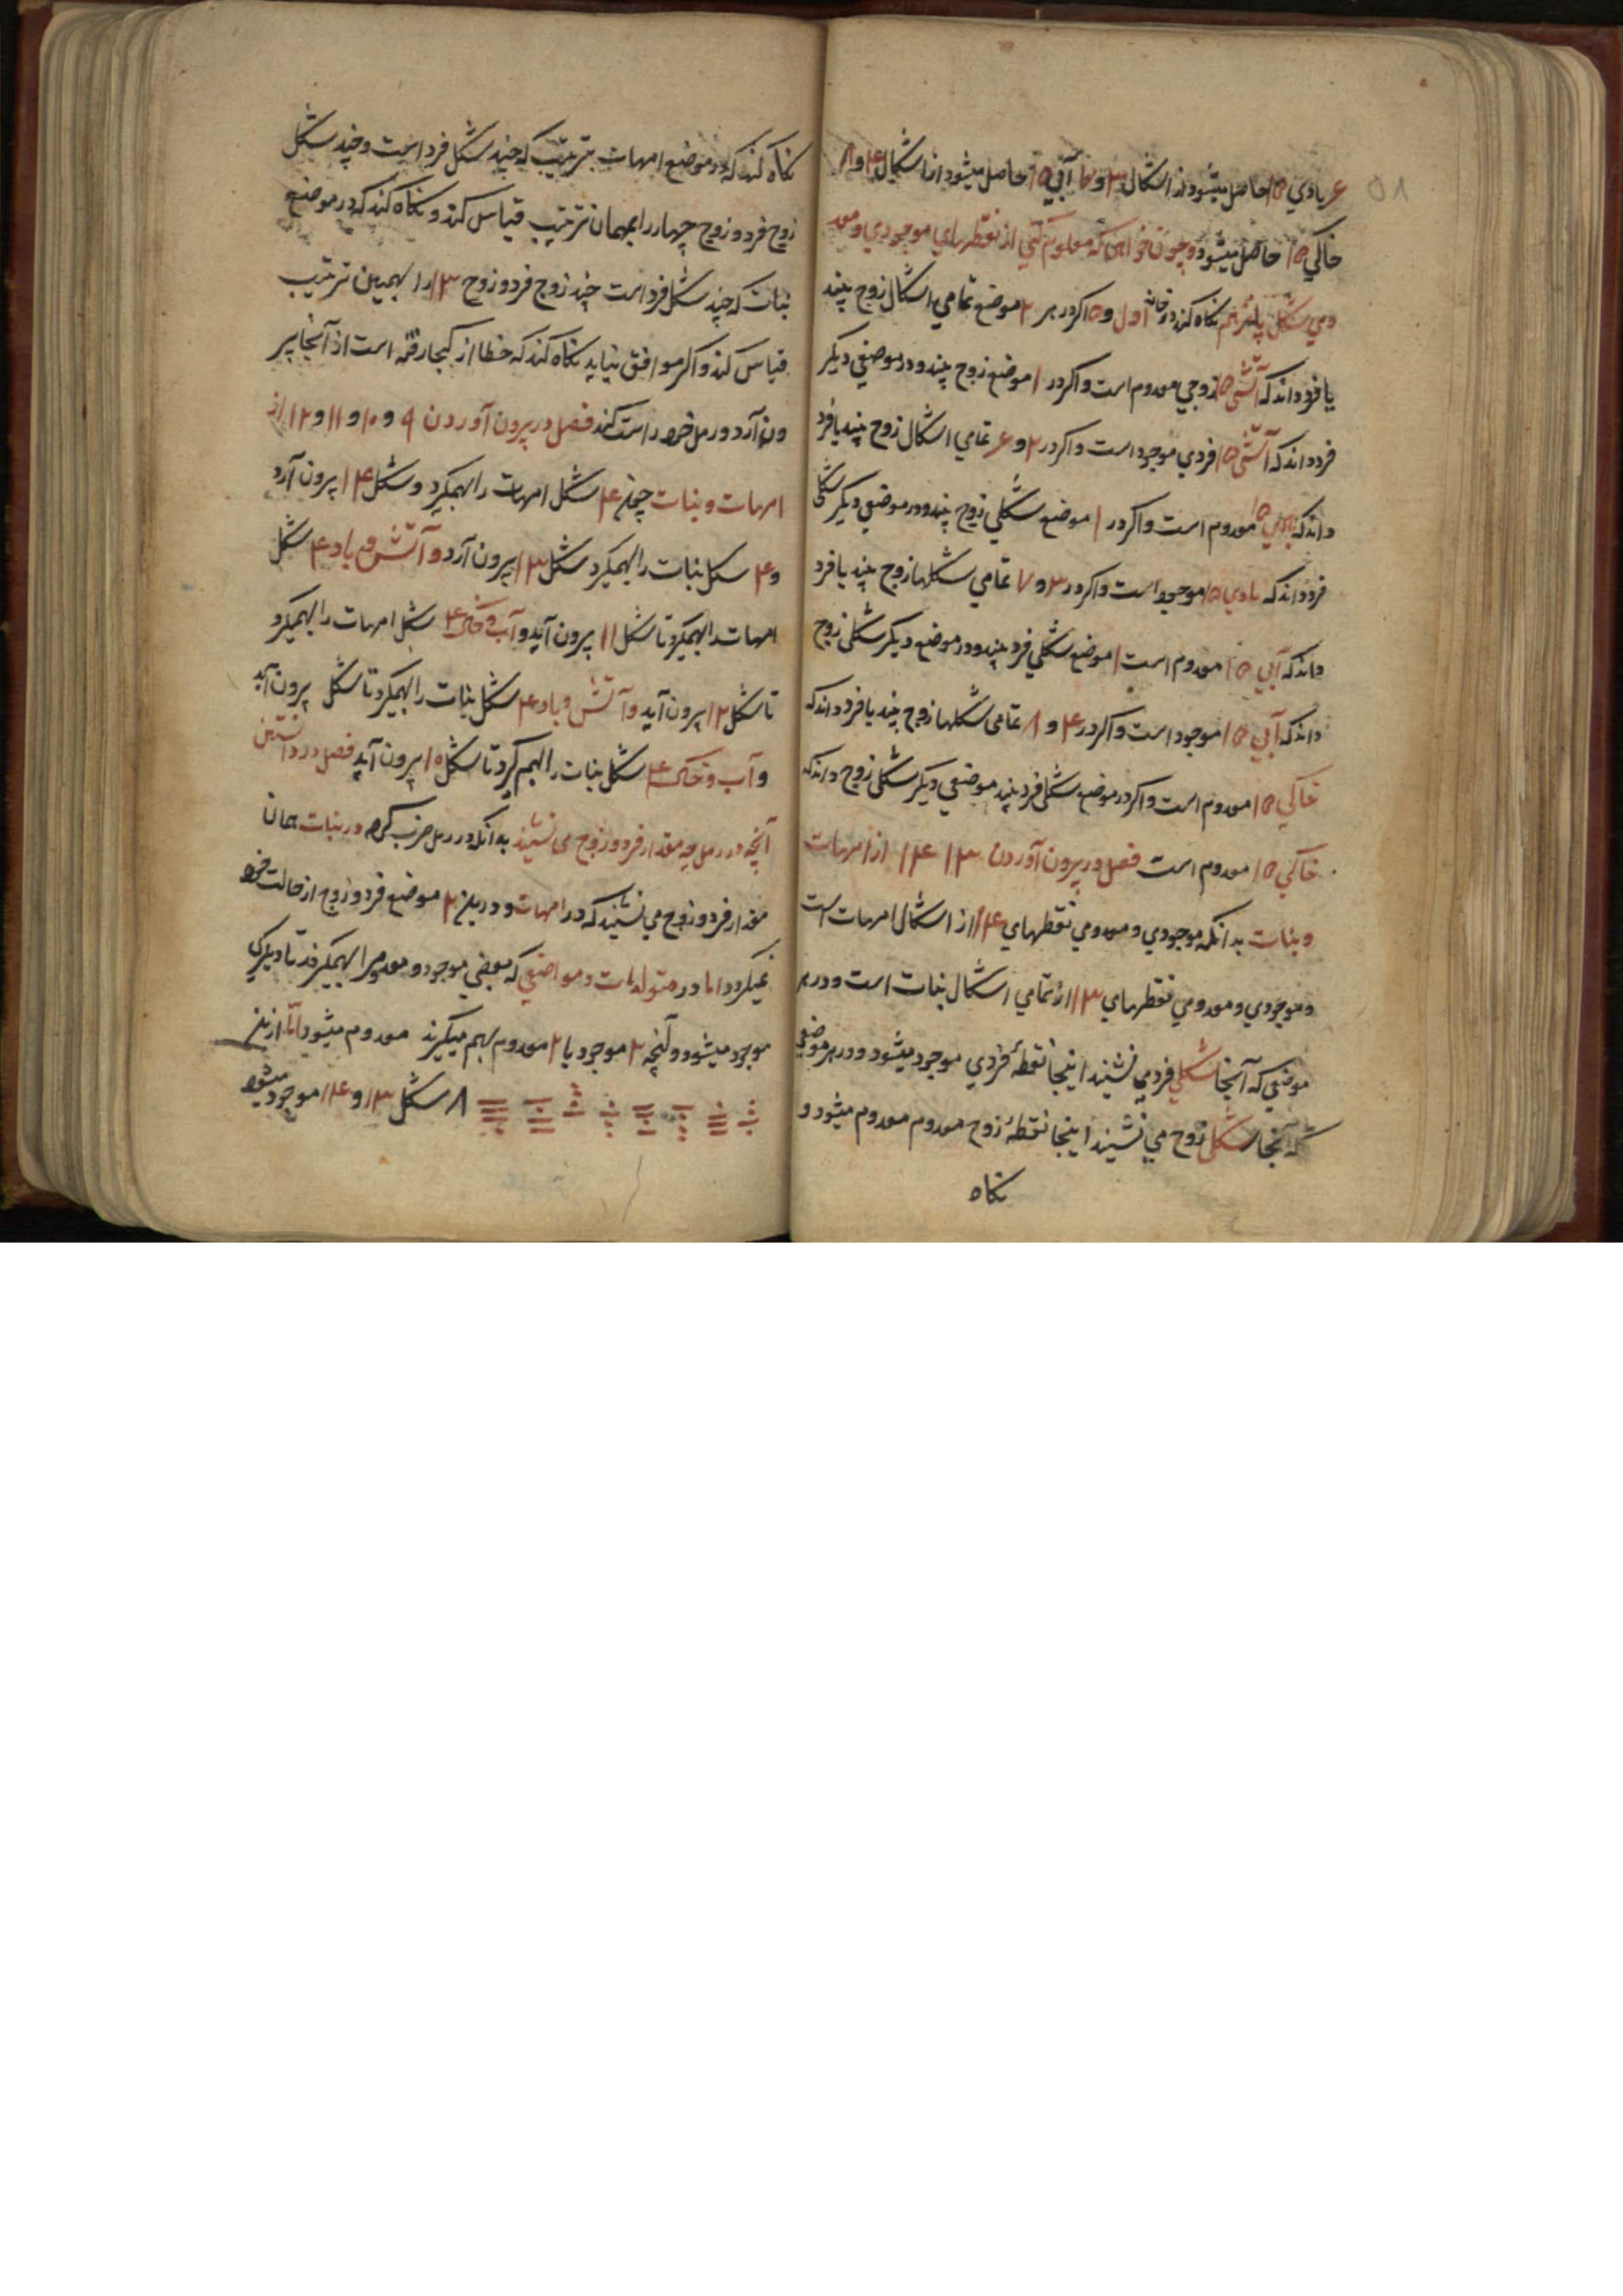 ۵۸
۶ بادي ۱۵ حاصل میشود از اشکال ۳ و ۷ آبي ۱۵ حاصل میشود از اشکال ۴ و ۸
خاکي ۱۵ حاصل میشود و چون خواهی که معلوم کني از نقطهاي موجودي و معد
ومي شکل پانزدهم نکاه کند در خانه اول و ۵ اکر در هر ۲ موضع تمامي اشکال زوج بیند
یا فرد داند که آتشی ۱۵ زوجي معدوم است و اکر در ۱ موضع زوج بیند و در موضعي دیکر
فرد داند که آتشی ۱۵ فردي موجود است و اکر در ۲ و ۶ تمامي اشکال زوج بیند یا فرد
داند که بادي ۱۵ معدوم است و اکر در ۱ موضع شکلي زوج بیند و در موضعي دیکر شکلی
فرد داند که بادي ۱۵ موجود است و اکر در ۳ و ۷ تمامي شکلها زوج بیند یا فرد
داند که آبي ۱۵ معدوم است ۱ موضع شکلي فرد بیند و در موضع دیکر شکلی زوج
داند که آبي ۱۵ موجود است و اکر در ۴ و ۸ تمامی شکلها زوج بیند یا فرد داند که
خاکي ۱۵ معدوم است و اکر در موضع شکلی فرد بیند موضعي دیکر شکلی زوج داند که
خاکي ۱۵ معدوم است فصل در بیرون آوردن ۱۳ ۱۴ از امهات
و بنات بدانکه موجودي و معدومي نقطهاي ۱۴ از اشکال امهات است
و موجودي و معدومي نقطهاي ۱۳ از تمامي اشکال بنات است و در هر
موضعي که آنجا شکلي فرد مي نشیند اینجا نقطهٔ فردي موجود میشود و در هر موضعي
که آنجا شکلی زوج مي نشیند اینجا نقطهٔ زوج معدوم معدوم میشود و
نکاه
نکاه کند که در موضع امهات بترتیب که چند شکل فرد است و چند شکل
زوج فرد و زوج چهار را بهمان ترتیب قیاس کند و نکاه کند که در موضع
بنات که چند شکل فرد است چند زوج فرد و زوج ۱۳ را بهمین ترتیب
قیاس کند و اکر موافق نیاید نکاه کند که خطا از کجا رفته است از آنجا بیر
ون آرد و رمل خود راست کند فصل در بیرون آوردن ۹ و ۱۰ و ۱۱ و ۱۲ از
امهات و بنات چون ۴ شکل امهات را بهمکیرد و شکل ۱۴ بیرون آرد
و ۴ شکل بنات را بهمکیرد شکل ۱۳ بیرون آرد و آتش و باد ۴ شکل
امهات را بهمکیرد تا شکل ۱۱ بیرون آید و آب و خاک ۴ شکل امهات را بهمکیرد
تا شکل ۱۲ بیرون آید و آتش و باد ۴ شکل بنات را بهمکیرد تا شکل بیرون آید
و آب و خاک ۴ شکل بنات را بهم کیرد تا شکل ۱۰ بیرون آید فصل در دانستن
آنچه در رمل چه مقدار فرد و زوج می نشیند بدانکه در رمل ضرب کرده در بنات همان
مقدار فرد و زوج مي نشیند که در امهات و در این ۲ موضع فرد و زوج از حالت خود
نمیکردد اما در متولدات و مواضعي که بعضي موجود و معدوم را بهمکیرند تا دیکری
موجود میشود و آنچه ۲ موجود یا ۲ معدوم بهم میکیرند معدوم میشود امّا از این
۸ شکل ۱۳ و ۱۴ موجود میشود